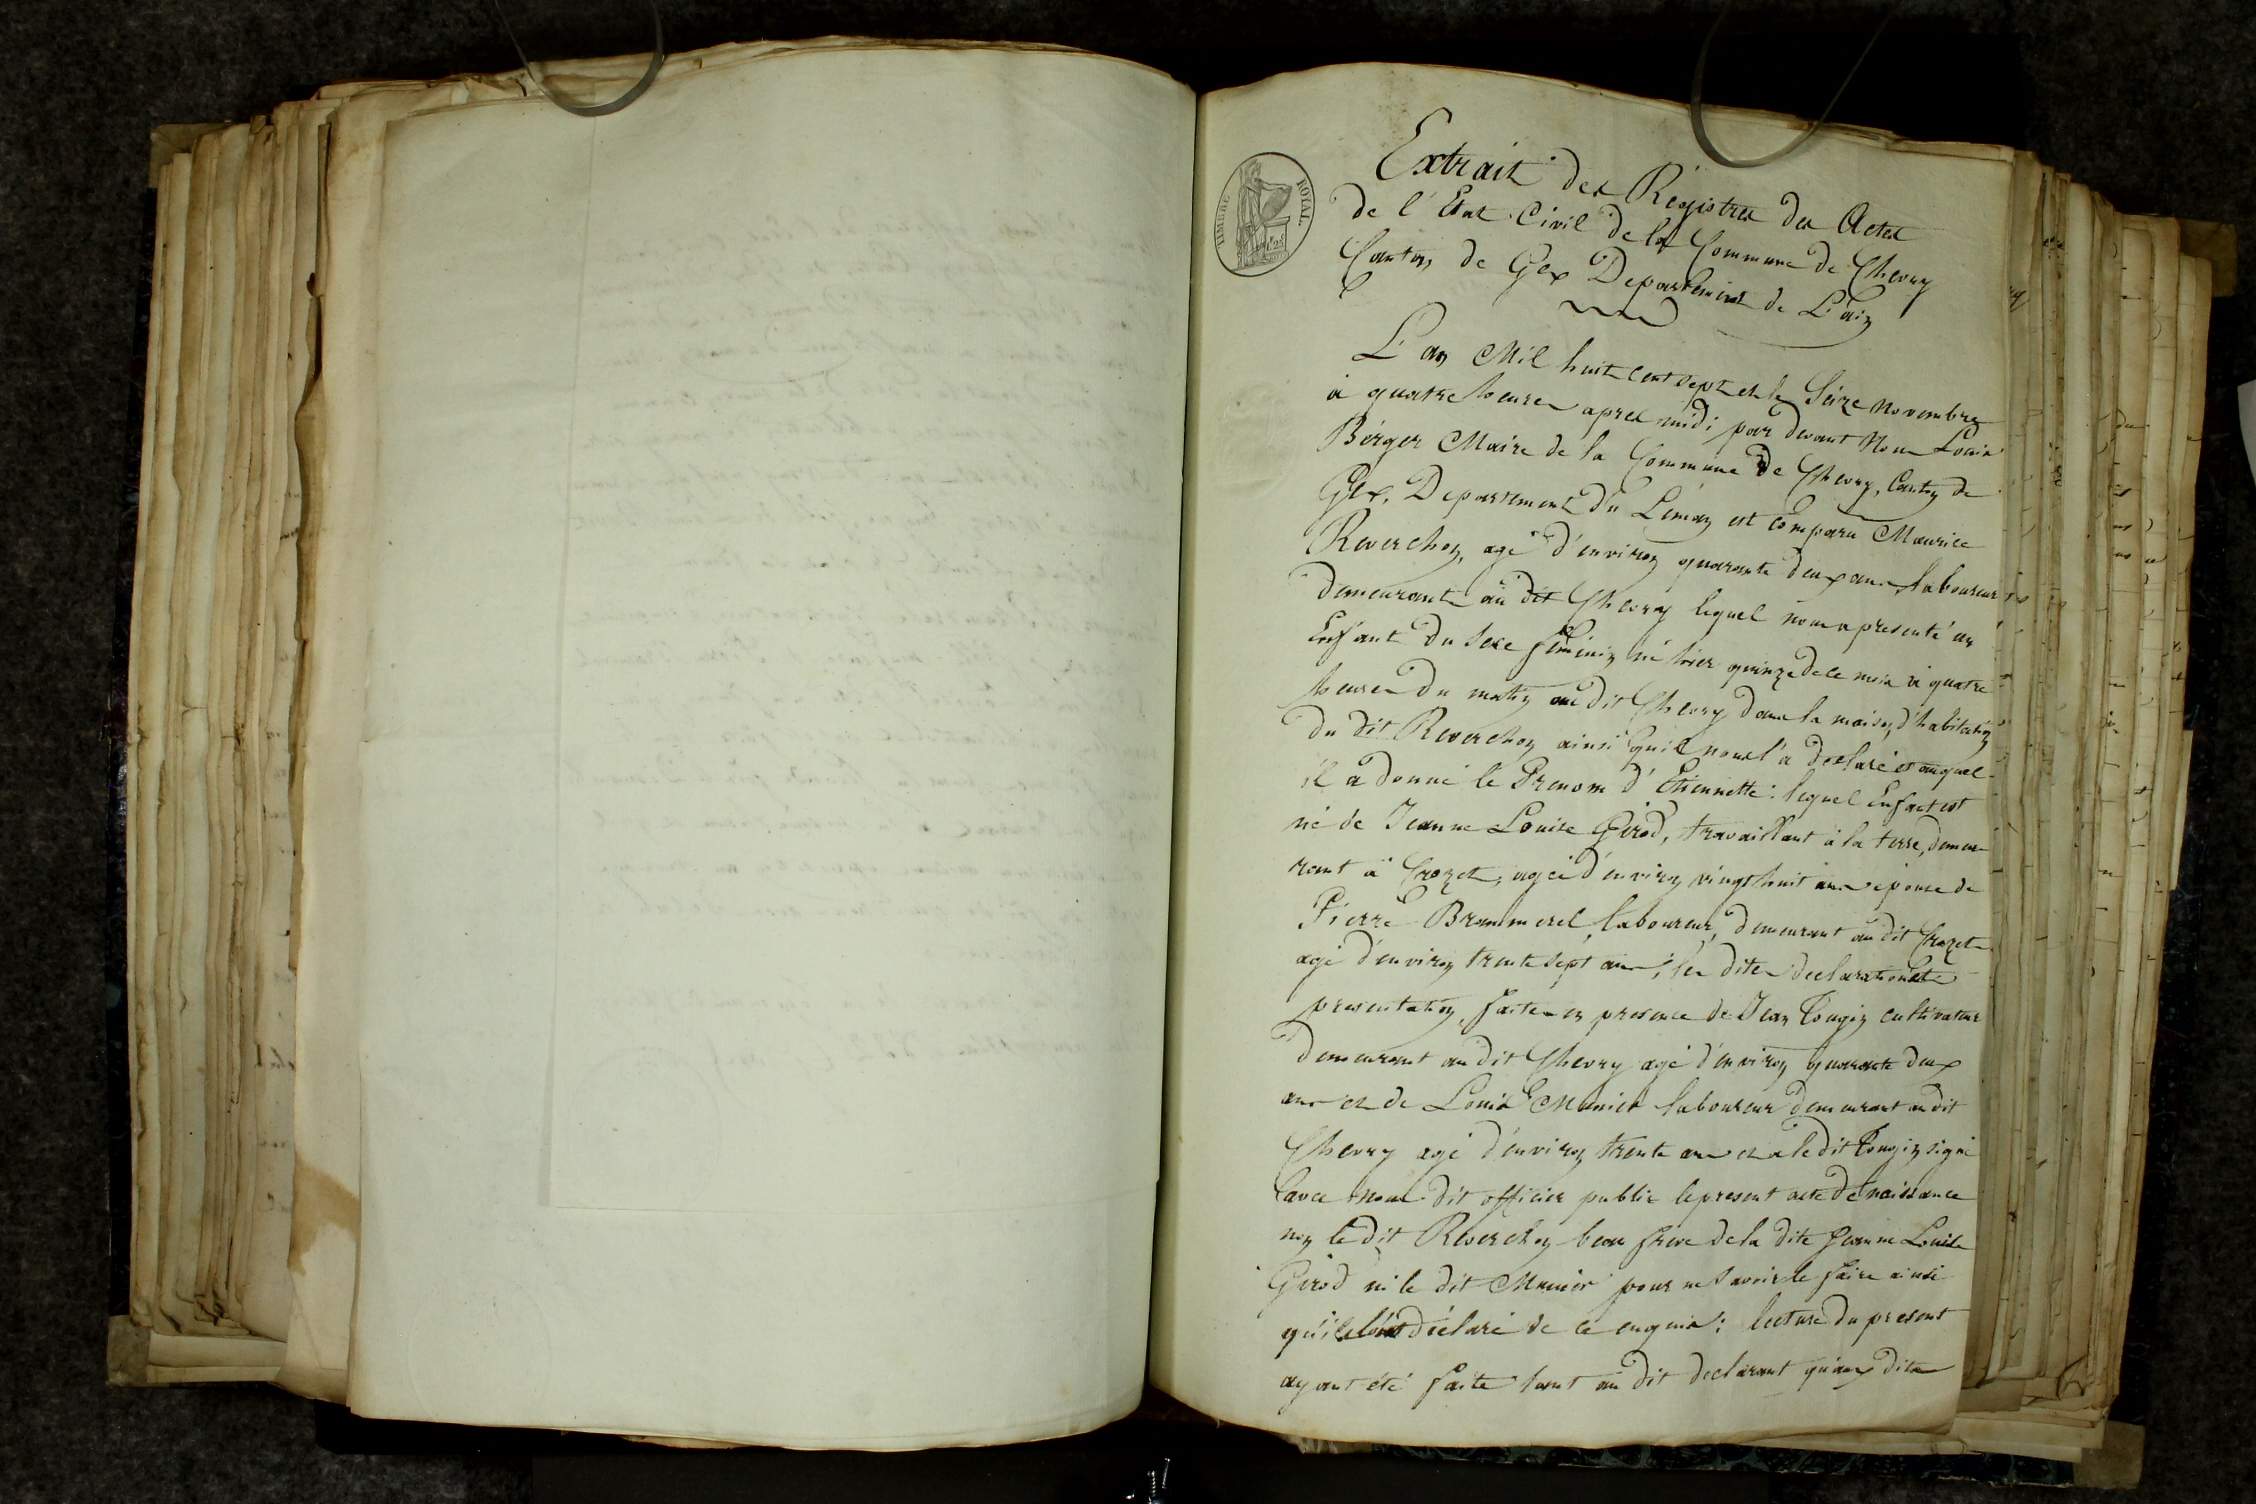 TIMBRE ROYAL
Extrait des Régistres des Actes
de l'Etat Civil de la Commune de Chevry
Canton de Gex Departement de L'ain
L'an Mil huit cent sept et le Seize novembre
à quatre heures apres midi par devant Nous Louis
Berger Maire de la Commune de Chevry, Canton de
Gex, Departement du Léman est comparu Maurice
Reverchon, agé d'environ quarante deux ans laboureur
demeurant au dit Chevry lequel nous a presenté un
Enfant du sexe féminin né hier quinze de ce mois à quatre
heures du matin au dit Chevry dans la maison d'habitation
du dit Reverchon ainsi qu'il nous l'a déclaré et auquel
il a donné le Prenom d'Etiennette: lequel Enfant est
né de Jeanne Louise Girod, travaillant à la terre, demeu-
rant à Crozet, agée d'environ vingt huit ans epouse de
Pierre Brammerel, laboureur, demeurant au dit Crozet
agé d'environ trente sept ans; les dites declaration et
presentation, faites en presence de Jean Tougin cultivateur
demeurant au dit Chevry agé d'environ quarante deux
ans et de Louis Munier laboureur demeurant au dit
Chevry agé d'environ trente ans et a le dit Tougin signé
avec nous dit officier public le present acte de naissance
non le dit Reverchon beau frere de la dite Jeanne Louise
Girod ni le dit Munier pour ne savoir le faire ainsi
déclaré de ce enquis: lecture du present
ayant été faite tant au dit declarant qu'aux dits